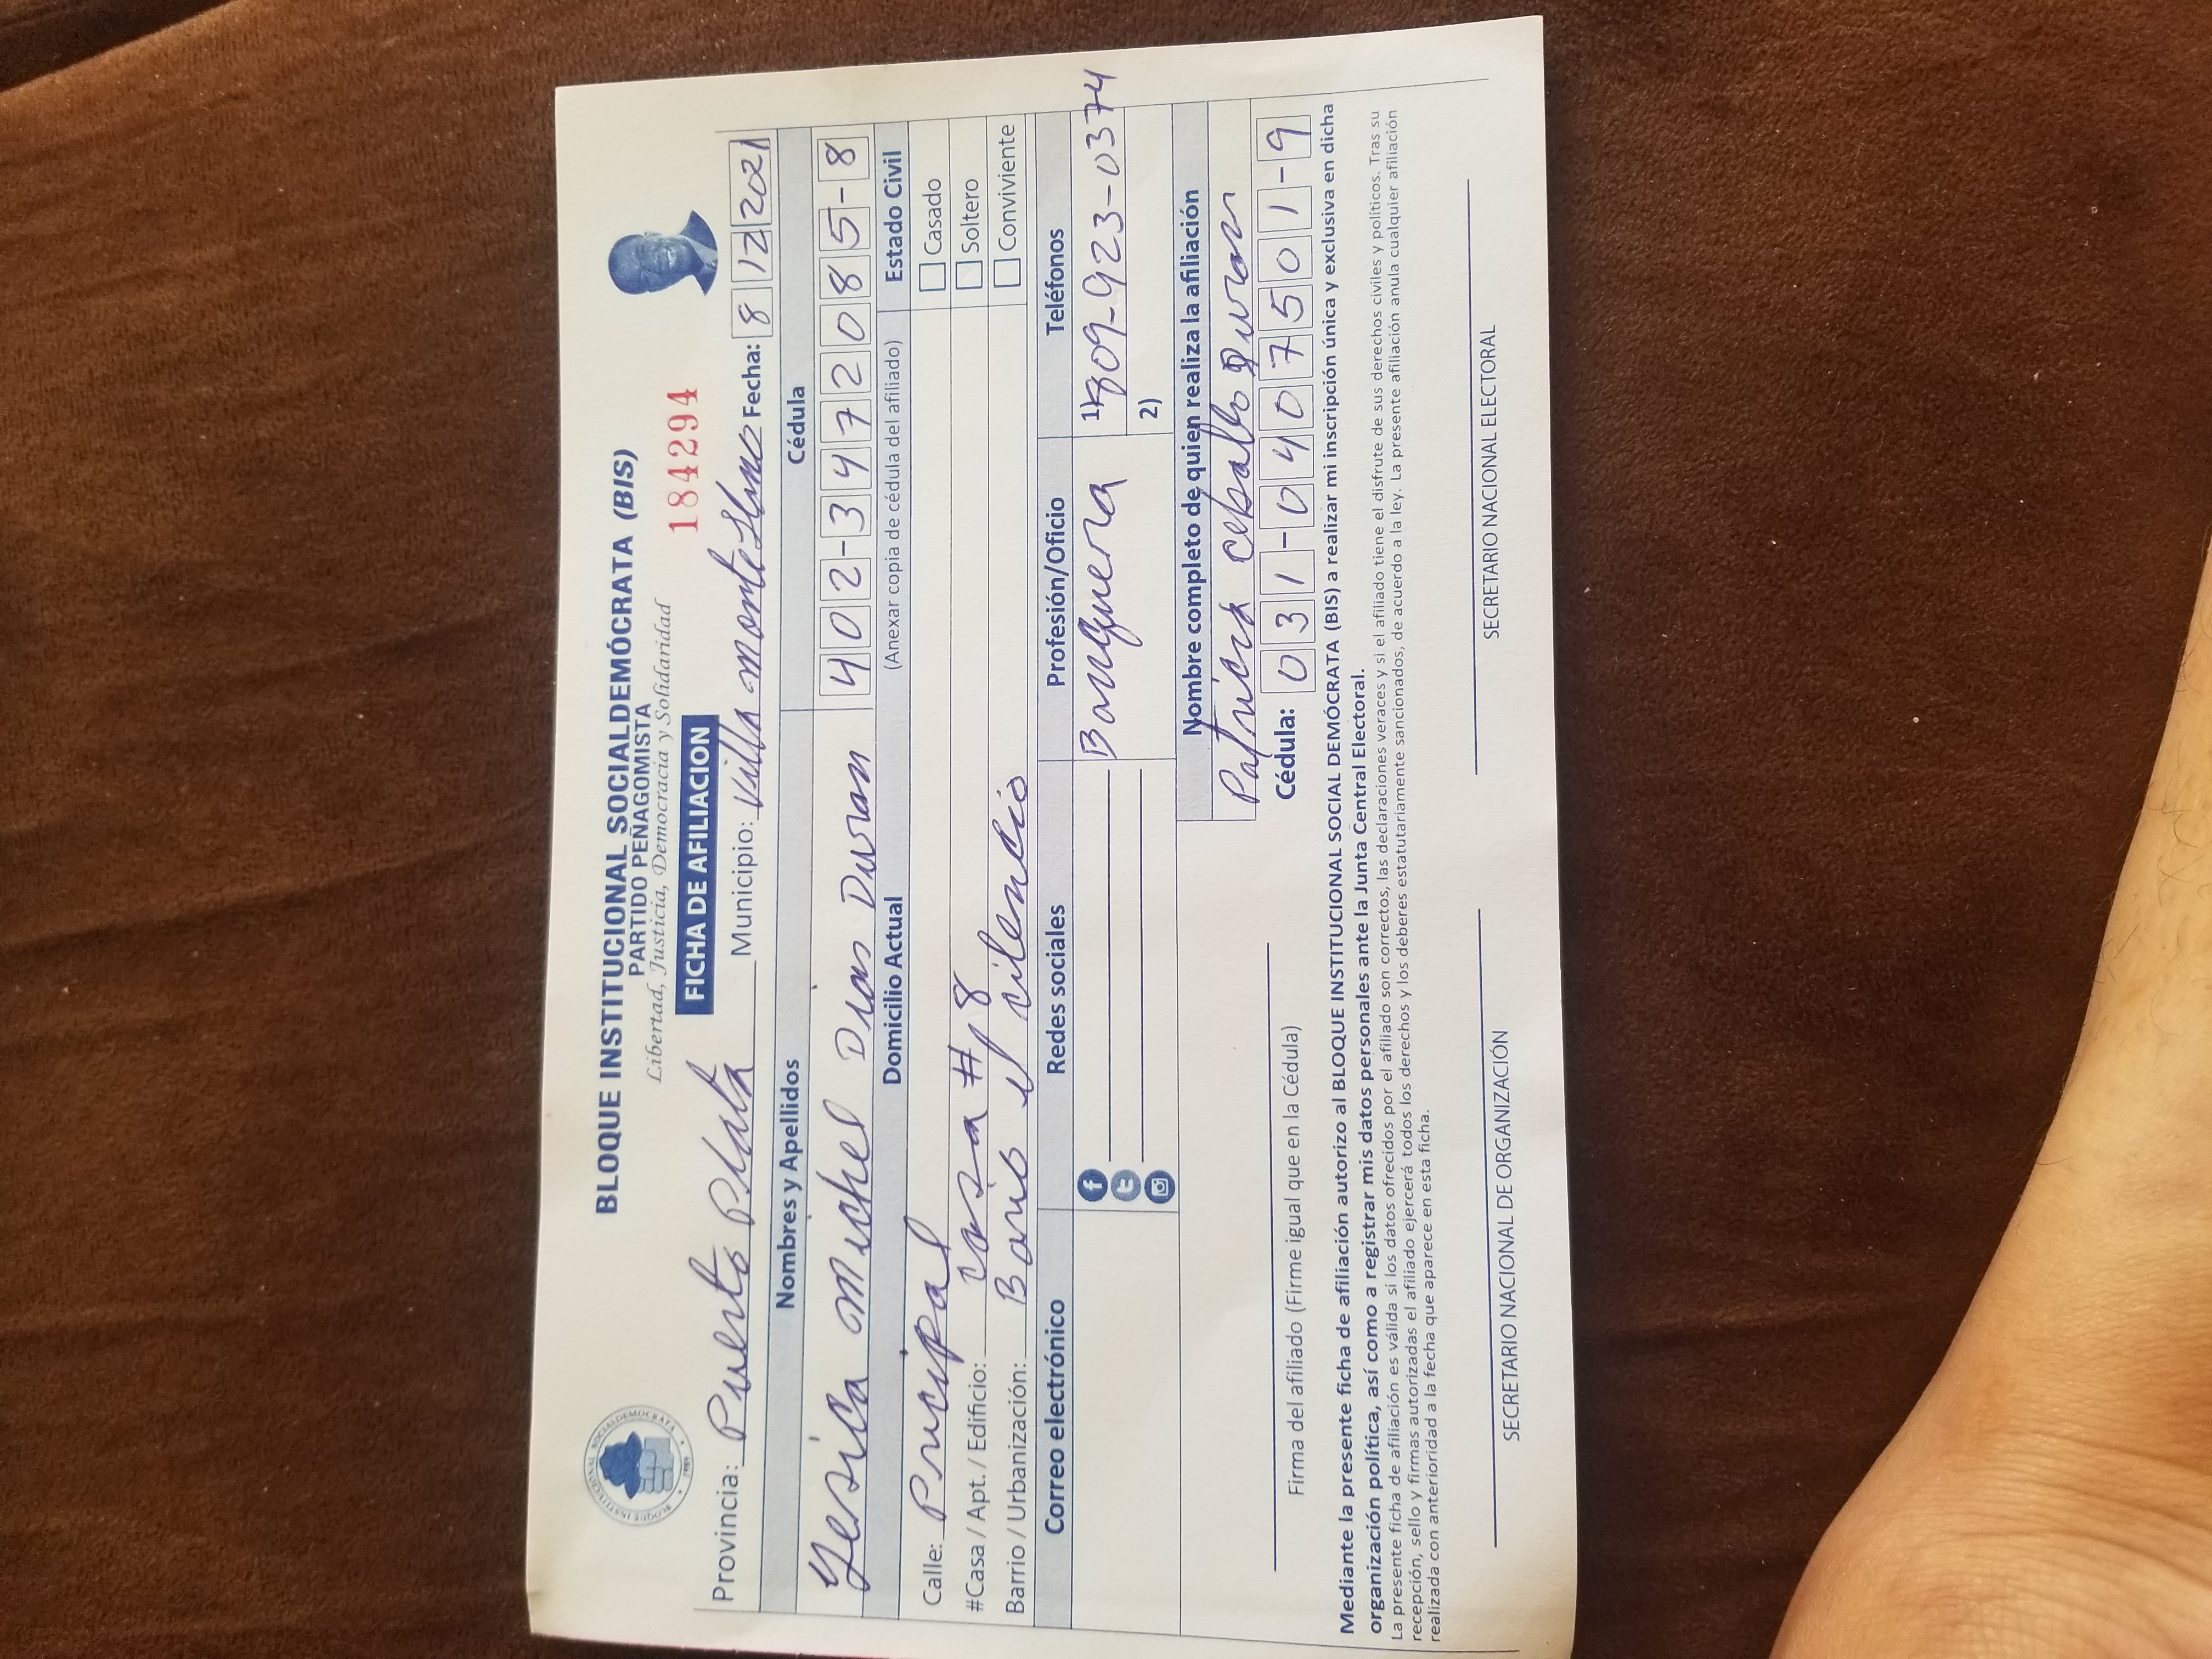 BLOQUE INSTITUCIONAL SOCIALDEMÓCRATA (BIS)
PARTIDO PEÑAGOMISTA
Libertad, Justicia, Democracia y Solidaridad
184294
FICHA DE AFILIACION
Provincia: Puerto Plata Municipio: Villa Fecha: 8 12 2021
Nombres y Apellidos Cédula
Yesica Michel Dias Duran 402-3472085-8
(Anexar copia de cédula del afiliado)
Domicilio Actual Estado Civil
Calle: Prucipal Casado
#Casa / Apt. / Edificio: casa # 8 Soltero
Barrio / Urbanización: Bario el cilencio Conviviente
Correo electrónico Redes sociales Profesión/Oficio Teléfonos
Banquera 1) 809-923-0374
2)
Nombre completo de quien realiza la afiliación
Patricia Duran
Cédula: 031-0407501-9
Firma del afiliado (Firme igual que en la Cédula)
Mediante la presente ficha de afiliación autorizo al BLOQUE INSTITUCIONAL SOCIAL DEMÓCRATA (BIS) a realizar mi inscripción única y exclusiva en dicha
organización política, así como a registrar mis datos personales ante la Junta Central Electoral.
La presente ficha de afiliación es válida si los datos ofrecidos por el afiliado son correctos, las declaraciones veraces y si el afiliado tiene el disfrute de sus derechos civiles y políticos. Tras su
recepción, sello y firmas autorizadas el afiliado ejercerá todos los derechos y los deberes estatutariamente sancionados, de acuerdo a la ley. La presente afiliación anula cualquier afiliación
realizada con anterioridad a la fecha que aparece en esta ficha.
SECRETARIO NACIONAL DE ORGANIZACIÓN SECRETARIO NACIONAL ELECTORAL